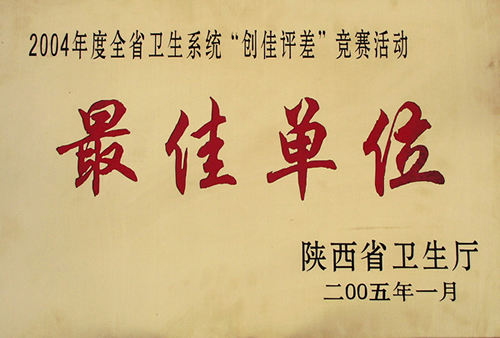 2004年度全省卫生系统“创佳评差”竞赛活动
最佳单位
陕西省卫生厅
二00五年一月